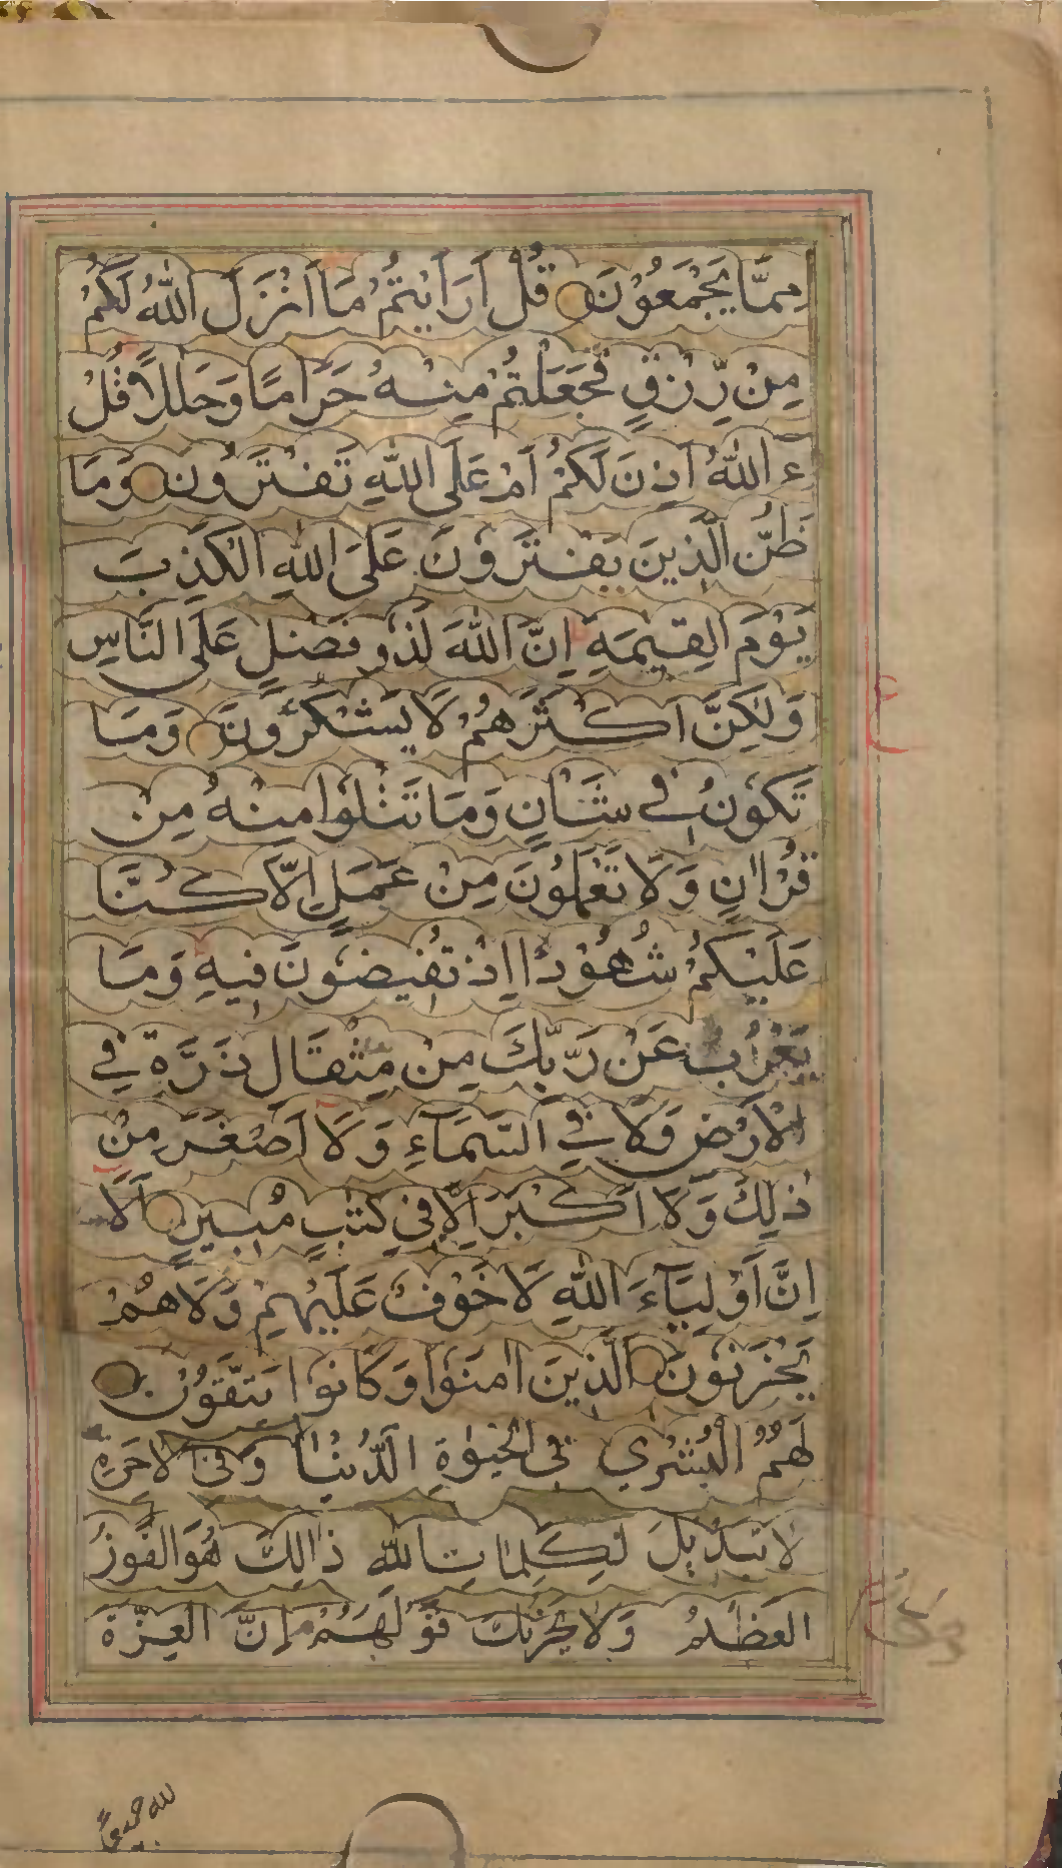 مِمَّا يَجْمَعُوْنَ قُلْ اَرَاَيْتُمْ مَا اَنْزَلَ اللّٰهُ لَكُمْ
مِنْ رِّزْقٍ فَجَعَلْتُمْ مِنْهُ حَرَامًا وَحَلٰلًا قُلْ
ءٰ اللّٰهُ اَذِنَ لَكُمْ اَمْ عَلَى اللّٰهِ تَفْتَرُوْنَ وَمَا
ظَنُّ الَّذِيْنَ يَفْتَرُوْنَ عَلَى اللّٰهِ الْكَذِبَ
يَوْمَ الْقِيٰمَةِ اِنَّ اللّٰهَ لَذُوْ فَضْلٍ عَلَى النَّاسِ
وَلٰكِنَّ اَكْثَرَهُمْ لَا يَشْكُرُوْنَ وَمَا
تَكُوْنُ فِيْ شَاْنٍ وَمَا تَتْلُوْا مِنْهُ مِنْ
قُرْاٰنٍ وَّلَا تَعْمَلُوْنَ مِنْ عَمَلٍ اِلَّا كُنَّا
عَلَيْكُمْ شُهُوْدًا اِذْ تُفِيْضُوْنَ فِيْهِ وَمَا
يَعْزُبُ عَنْ رَّبِّكَ مِنْ مِّثْقَالِ ذَرَّةٍ فِي
الْاَرْضِ وَلَا فِي السَّمَآءِ وَلَا اَصْغَرَ مِنْ
ذٰلِكَ وَلَا اَكْبَرَ اِلَّا فِيْ كِتٰبٍ مُّبِيْنٍ اَلَا
اِنَّ اَوْلِيَآءَ اللّٰهِ لَا خَوْفٌ عَلَيْهِمْ وَلَا هُمْ
يَحْزَنُوْنَ الَّذِيْنَ اٰمَنُوْا وَكَانُوْا يَتَّقُوْنَ
لَهُمُ الْبُشْرٰي فِي الْحَيٰوةِ الدُّنْيَا وَفِي الْاٰخِرَةِ
لَا تَبْدِيْلَ لِكَلِمَاتِ اللّٰهِ ذَالِكَ هُوَ الْفَوْزُ
الْعَظِيْمُ وَلَا يَحْزُنْكَ قَوْلُهُمْ اِنَّ الْعِزَّةَ
لله جميعًا